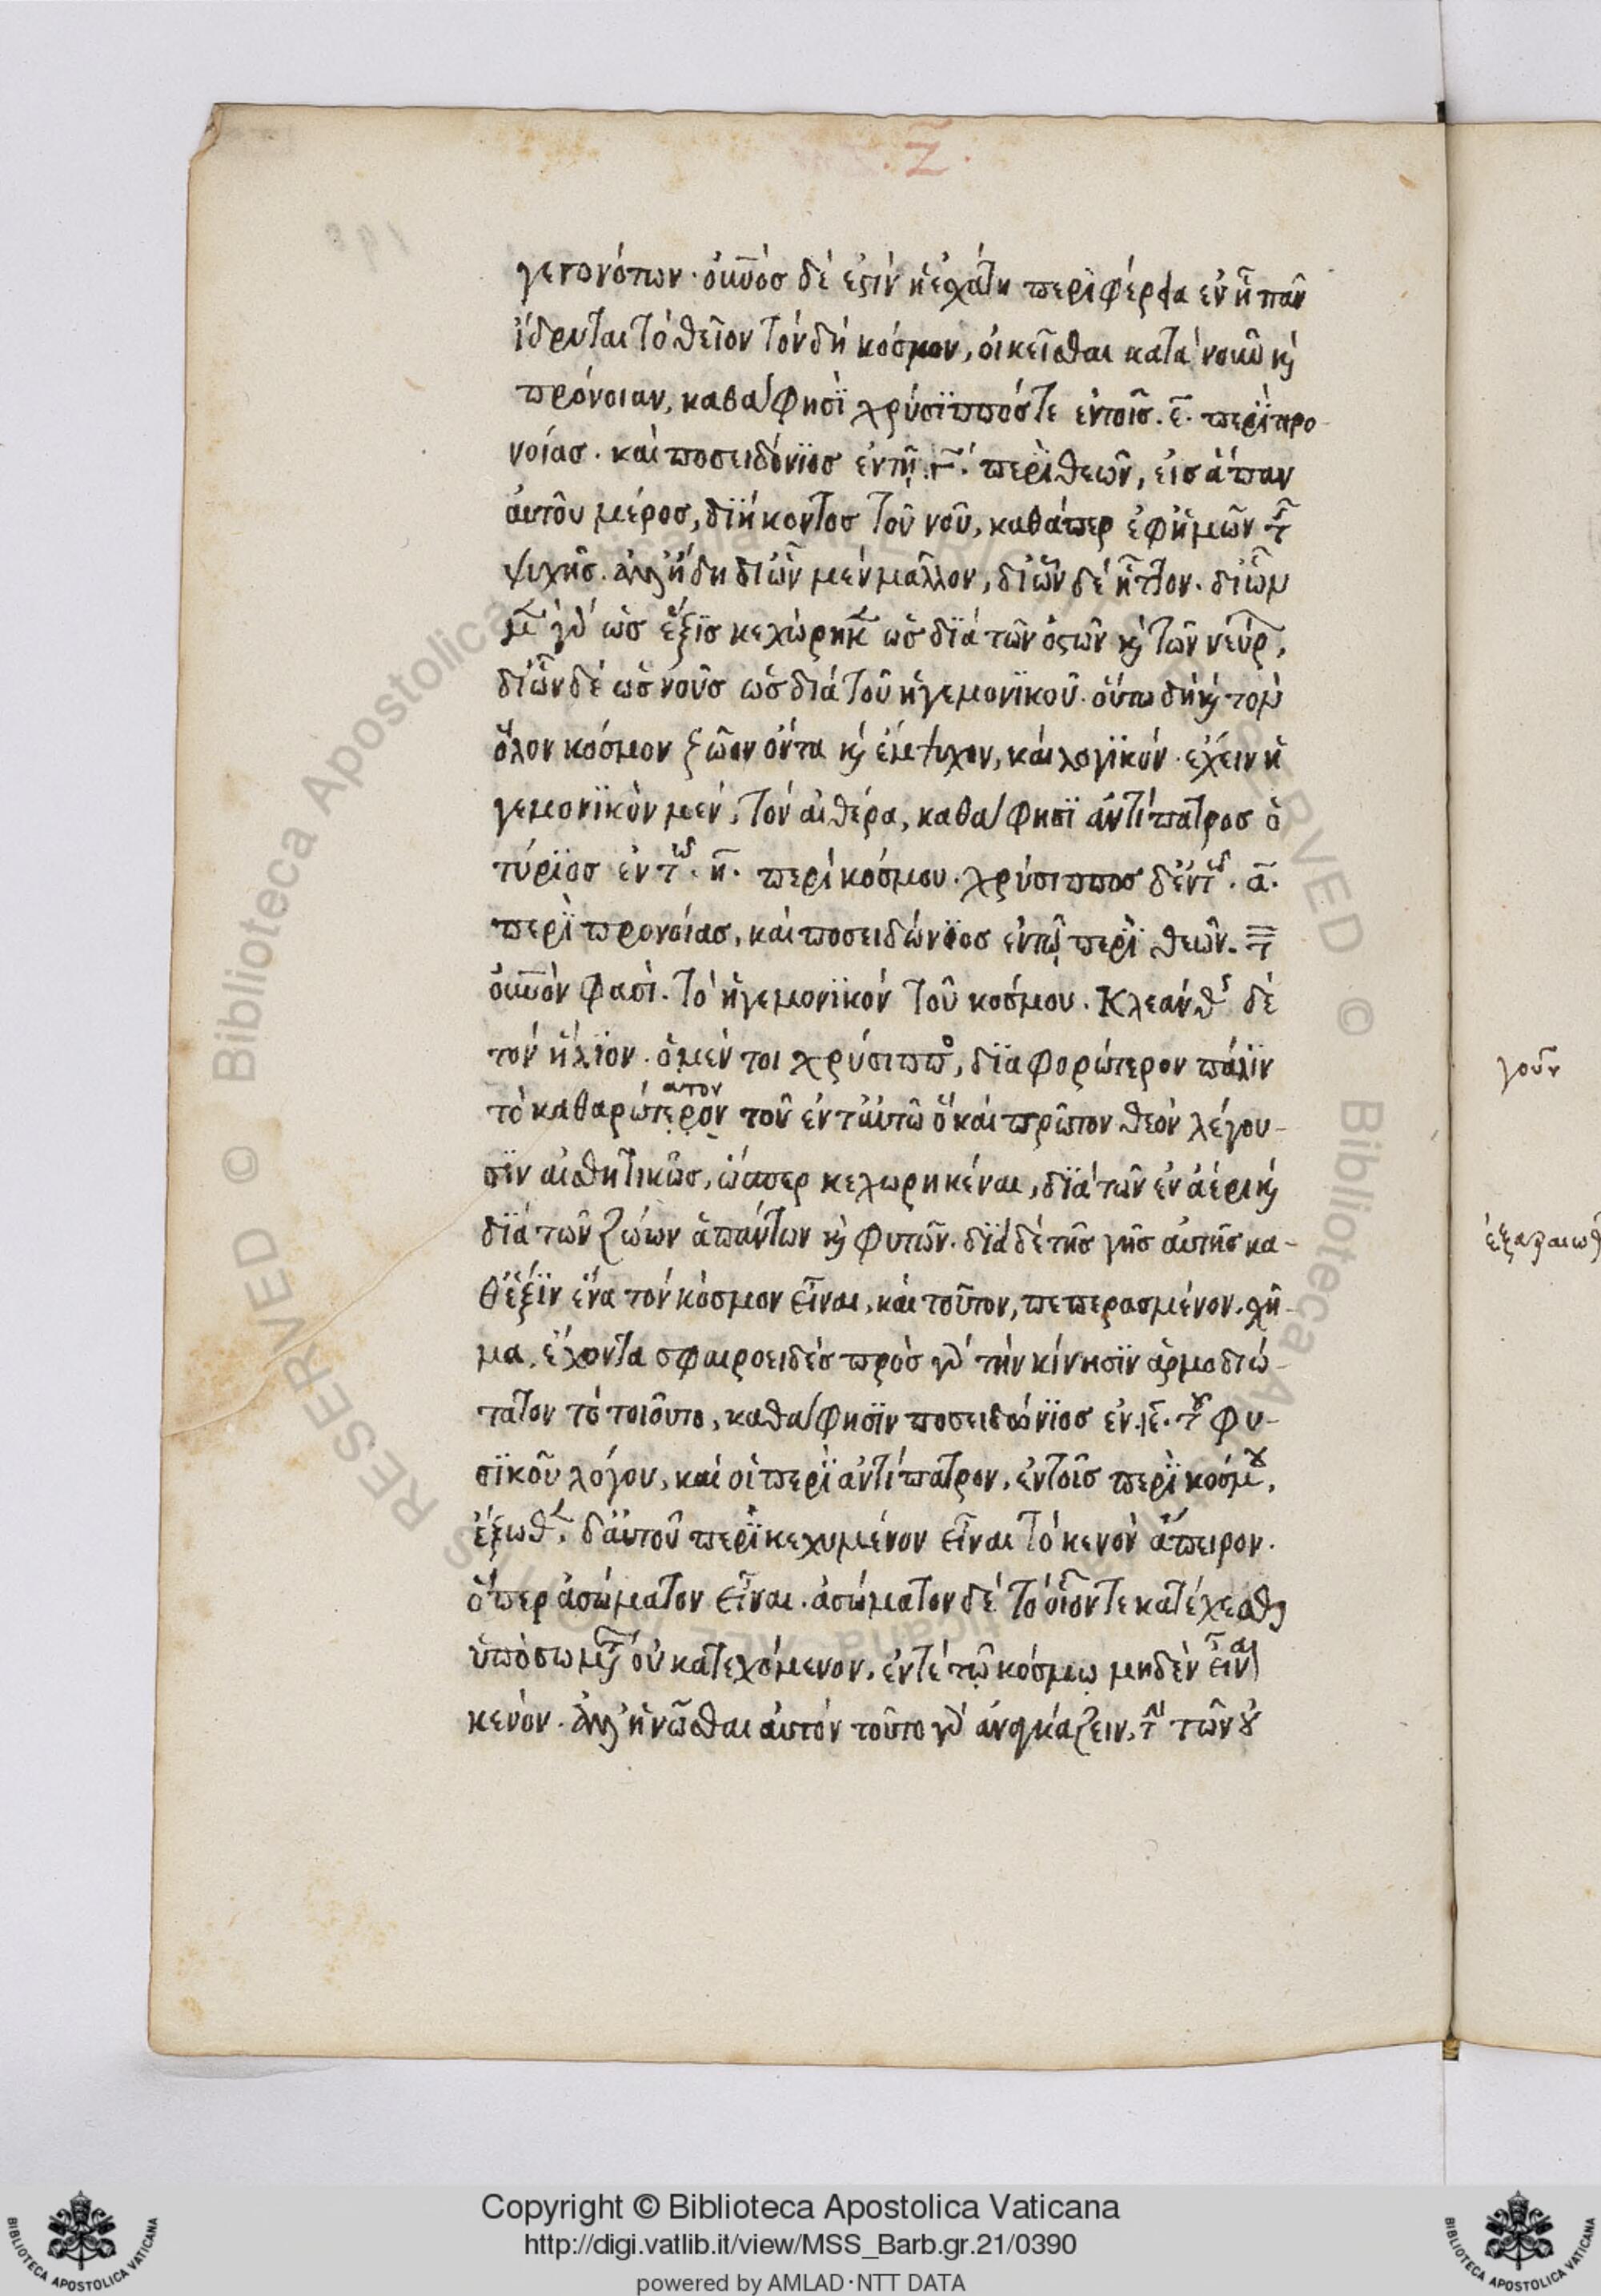 .ζ̅.
γεγονότων· οὐ̅νόσ δέ ἐστίν ἡ ἐσχάτη περϊφέρεια ἐν ἧ πᾶν
ἵδρυται τὸ θεῖον τόν δή κόσμον, οἰκεῖσθαι κατά νοῦν κὶ
πρόνοιαν, καθά φησϊ χρύσϊπποσ τε ἐντοῖσ. ε̅. περϊ προ-
νοίασ. καὶ ποσειδόνϊοσ ἐντῆ. γ̅. περὶ θεῶν, εἰσ ἅπαν
ἀυτοῦ μέροσ, δϊήκοντοσ τοῦ νοῦ, καθάπερ ἐφ ἡμῶν τ̅ῆσ
ψυχῆσ. ἀλλ ἤδη διῶν μέν μᾶλλον, διῶν δέ ἧττον. διῶμ
μ̅ὲν γὰρ ὡσ ἕξϊσ κεχώρηκεν ὡσ δϊά τῶν ὀστῶν κὶ τῶν νεύρων,
διῶν δέ ὡσ νοῦσ ὡσ διά τοῦ ἡγεμονϊκοῦ. οὕτω δή κὶ τόν
ὅλον κόσμον ζῶον ὄντα κὶ ἔμψυχον, καὶ λογϊκόν. ἔχειν ἡ
γεμονϊκόν μέν, τόν αἰθέρα, καθά φησϊ ἀντίπατροσ ὁ
τύρϊοσ ἐν τῶ. η̅. περί κόσμου. χρύσιπποσ δ ἐν τῶ. α̅.
περϊ προνοίασ, καὶ ποσειδώνϊοσ ἐντῶ περϊ θεῶν. τ̅
οὐ̅νόν φασὶ. τὸ ἡγεμονϊκόν τοῦ κόσμου. Κλεάνθησ δέ
τόν ἥλϊον. ὁ μέν τοι χρύσιπποσ, δϊαφορώτερον πάλϊν
ατον
τὸ καθαρώτερον τοῦ ἐν ταυτῶ ὅ καὶ πρῶτον θεόν λέγου-
σϊν αἰσθητικῶσ, ὥσπερ κεχωρηκέναι, δϊά τῶν ἐν ἀέρι κὶ
δϊά τῶν ζώων ἁπάντων κὶ φυτῶν. δϊά δέ τῆσ γῆσ ἀυτῆσ κα-
θ ἕξϊν ἕνα τόν κόσμον εἶναι, καὶ τοῦτον, πεπερασμένον. σχῆ-
μα, ἔχοντα σφαιροειδέσ πρόσ γὰρ τήν κίνησϊν ἁρμοδιώ-
τατον τό τοιοῦτο, καθά φησϊν ποσειδώνϊοσ ἐν. ιε̅. τοῦ φυ-
σϊκοῦ λόγου, καὶ οἱ περϊ ἀντίπατρον, ἐντοῖσ περϊ κόσμου.
ἔξωθεν. δ ἀυτοῦ περϊκεχυμένον εἶναι τὸ κενόν ἄπειρον.
ὅπερ ἀσώματον εἶναι. ἀσώματον δέ τὸ οἷόντε κατέχεσθαι
ὑπὸ σωμάτων οὐ κατεχόμενον. ἐντέ τῶ κόσμω μηδὲν εἶναι
κενόν. ἀλλ ἡνῶσθαι ἀυτόν τοῦτο γὰρ ἀναγκάζειν, τὴν τῶν οὐ
γοῦν